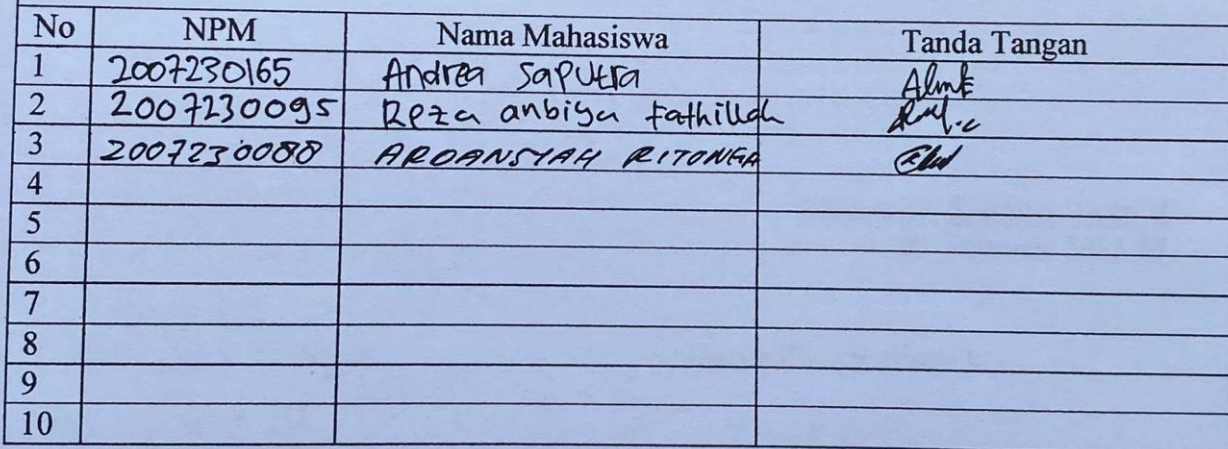 No NPM Nama Mahasiswa Tanda Tangan
1 2007230165 Andrea Saputra
2 2007230095 Reza anbiya fathillah
3 2007230088 ARDANSYAH RITONGA
4
5
6
7
8
9
10